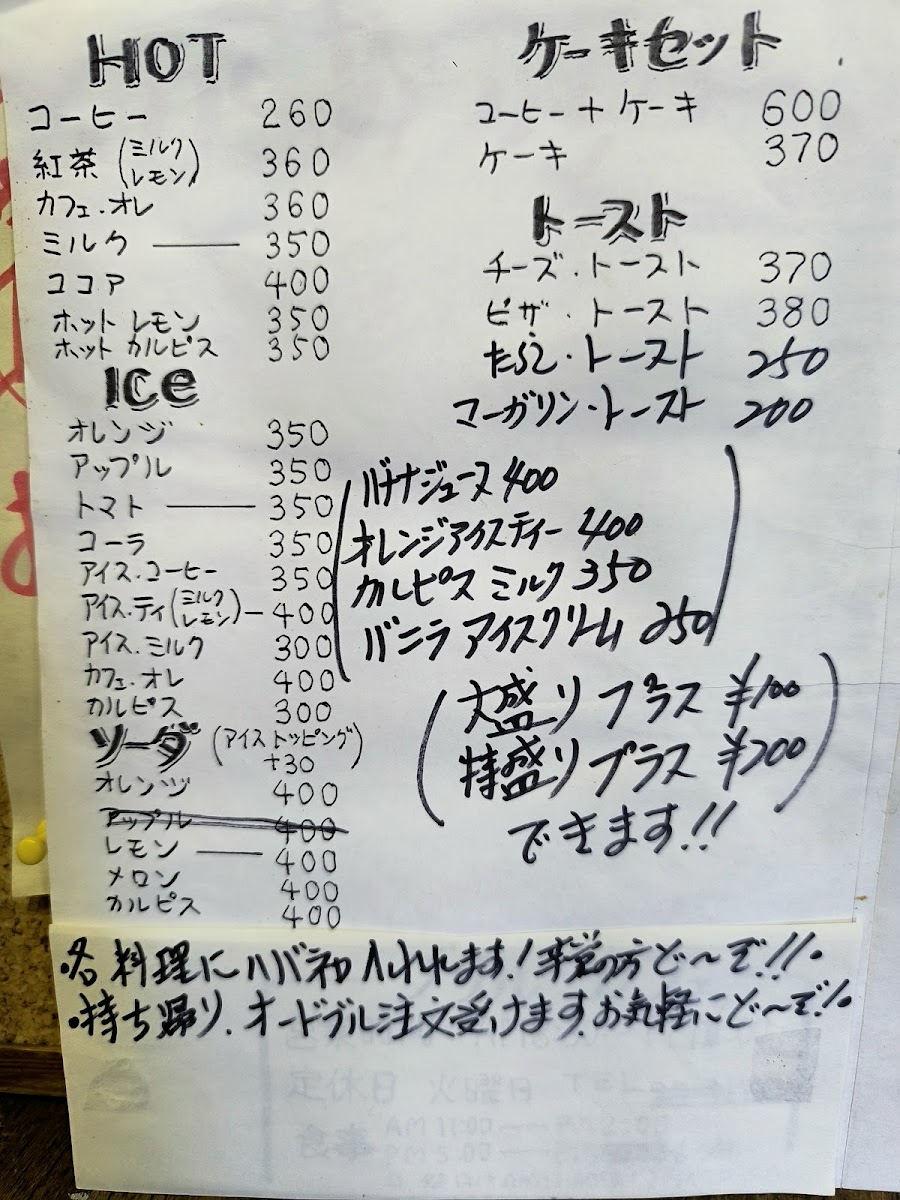 HOT
コーヒー 260
紅茶 (ミルク レモン) 360
カフェ・オレ 360
ミルク 350
ココア 400
ホット レモン 350
ホット カルピス 350
Ice
オレンジ 350
アップル 350
トマト 350
コーラ 350
アイス・コーヒー 350
アイス・ティ (ミルク レモン) 400
アイス・ミルク 300
カフェ・オレ 400
カルピス 300
ソーダ (アイストッピング) +30
オレンジ 400
アップル 400
レモン 400
メロン 400
カルピス 400
ケーキセット
コーヒー + ケーキ 600
ケーキ 370
トースト
チーズ・トースト 370
ピザ・トースト 380
たらこ・トースト 250
マーガリン・トースト 200
バナナジュース 400
オレンジアイスティー 400
カルピス ミルク 350
バニラ アイスクリーム 250
(大盛り プラス ¥100
特盛り プラス ¥200)
できます!!
・各料理にハバネロ入れれます!の方ど〜ぞ!!・
・持ち帰り、オードブル注文受けます。お気軽にど〜ぞ!・
定休日 火曜日 TEL
AM 11:00
PM 5:00